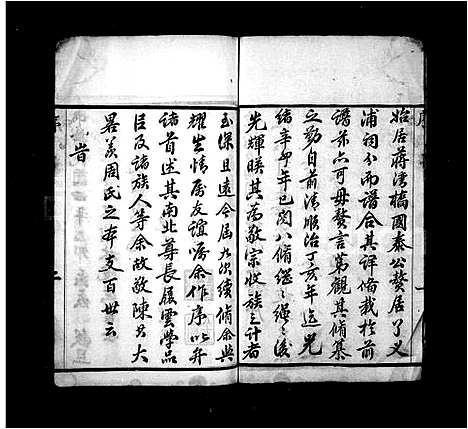 始居蔣灣橋國泰公贅居了义
浦祠分而譜合其詳俻載於前
譜茲亦可毋贅言第觀其俻纂
之勤自前清順治丁亥年迄光
緒辛卯年已閱八俻繼〻繩〻後
先輝暎其為敬宗收族之計者
至深且遠今屆九次續俻余與
耀生情居友誼囑余作序以弁
諸首述其南北尊長履雲學品
臣及諸族人等余故敬陳其大
畧羙周氏之本支百世云
旹